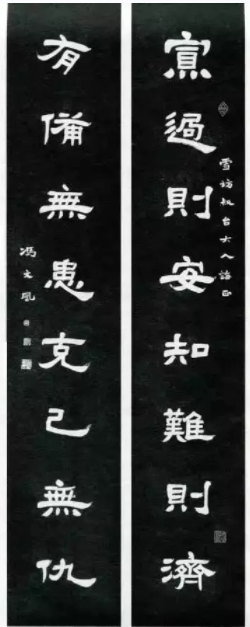 寡過則安知難則濟
雪坊叔台大人諟正
有備無患克己無仇
馮文鳳